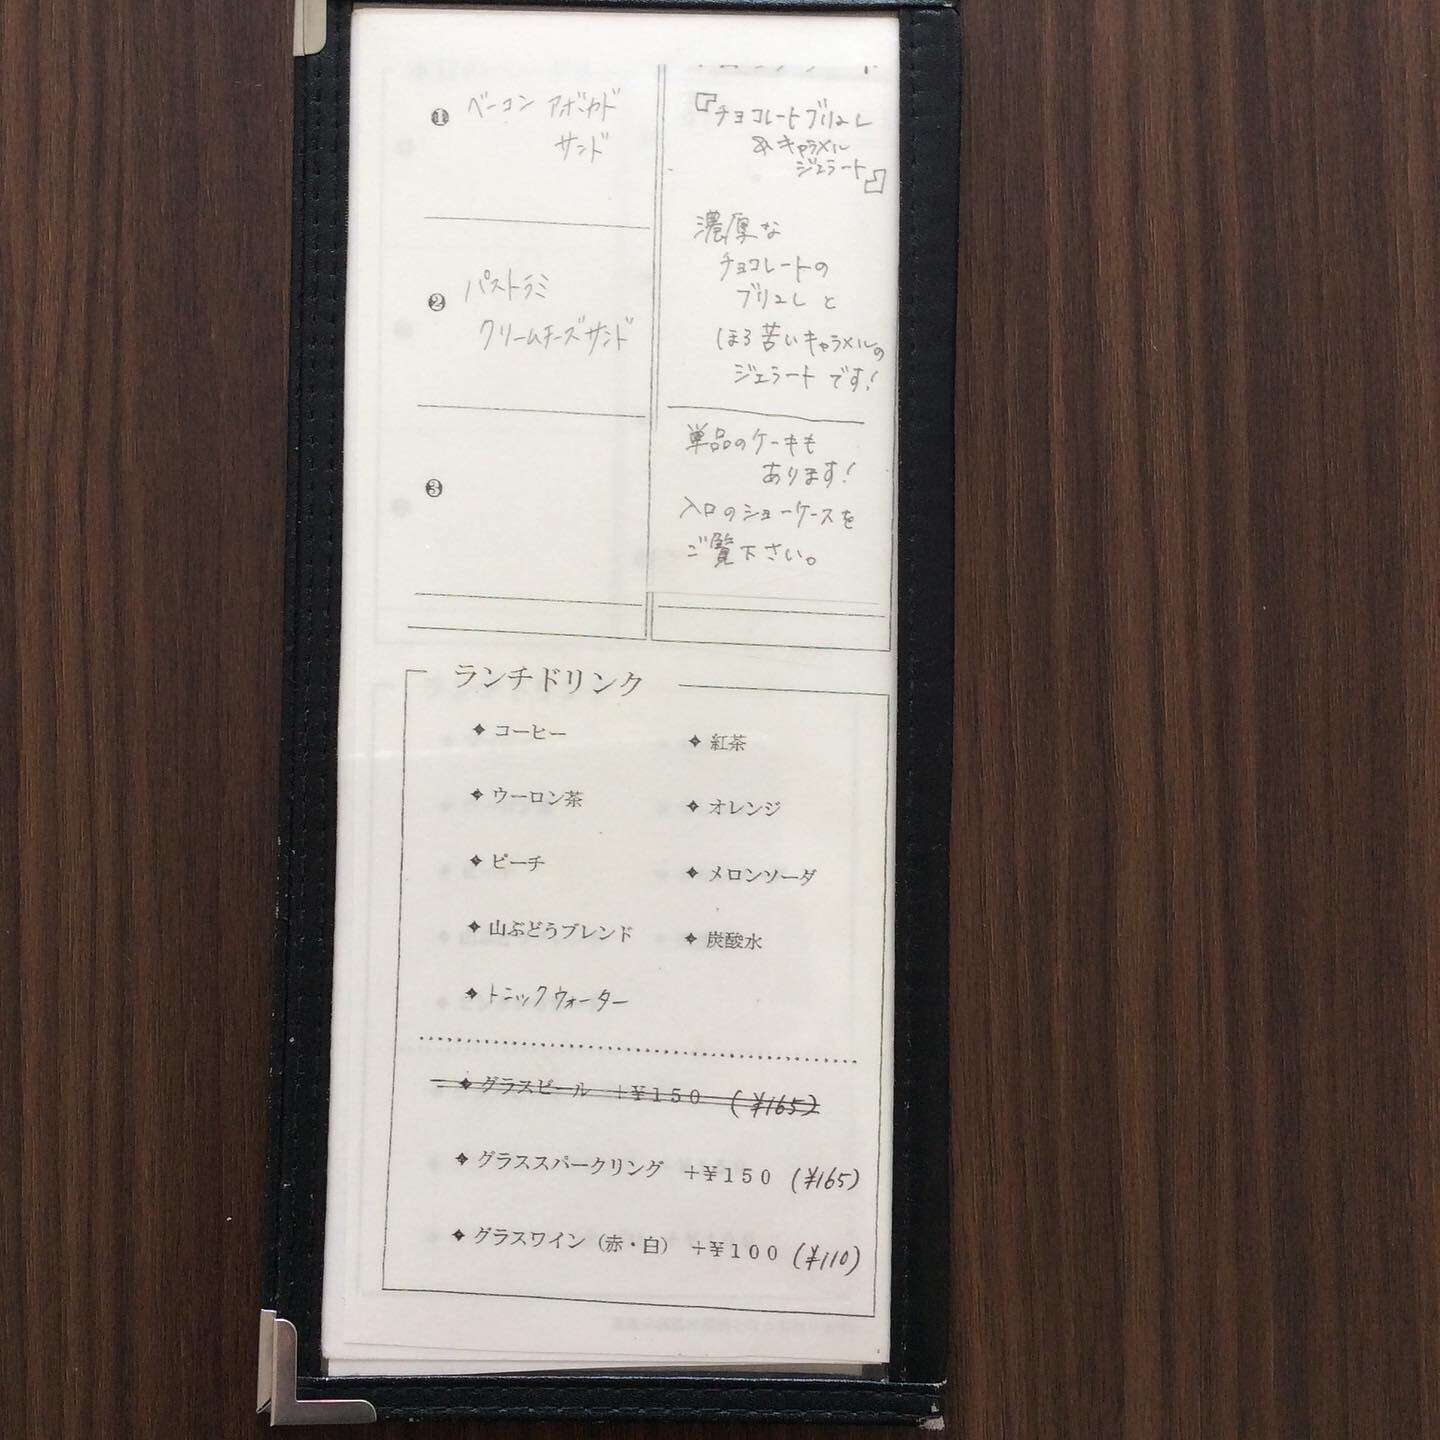 ❶ ベーコン アボカド
サンド
❷ パストラミ
クリームチーズサンド
❸
『チョコレートブリュレ
&キャラメル
ジェラート』
濃厚な
チョコレートの
ブリュレと
ほろ苦いキャラメルの
ジェラートです!
単品のケーキも
あります!
入口のショーケースを
ご覧下さい。
ランチドリンク
✦ コーヒー
✦ 紅茶
✦ ウーロン茶
✦ オレンジ
✦ ピーチ
✦ メロンソーダ
✦ 山ぶどうブレンド
✦ 炭酸水
✦ トニックウォーター
✦ グラスビール +¥150 (¥165)
✦ グラススパークリング +¥150 (¥165)
✦ グラスワイン(赤・白) +¥100 (¥110)